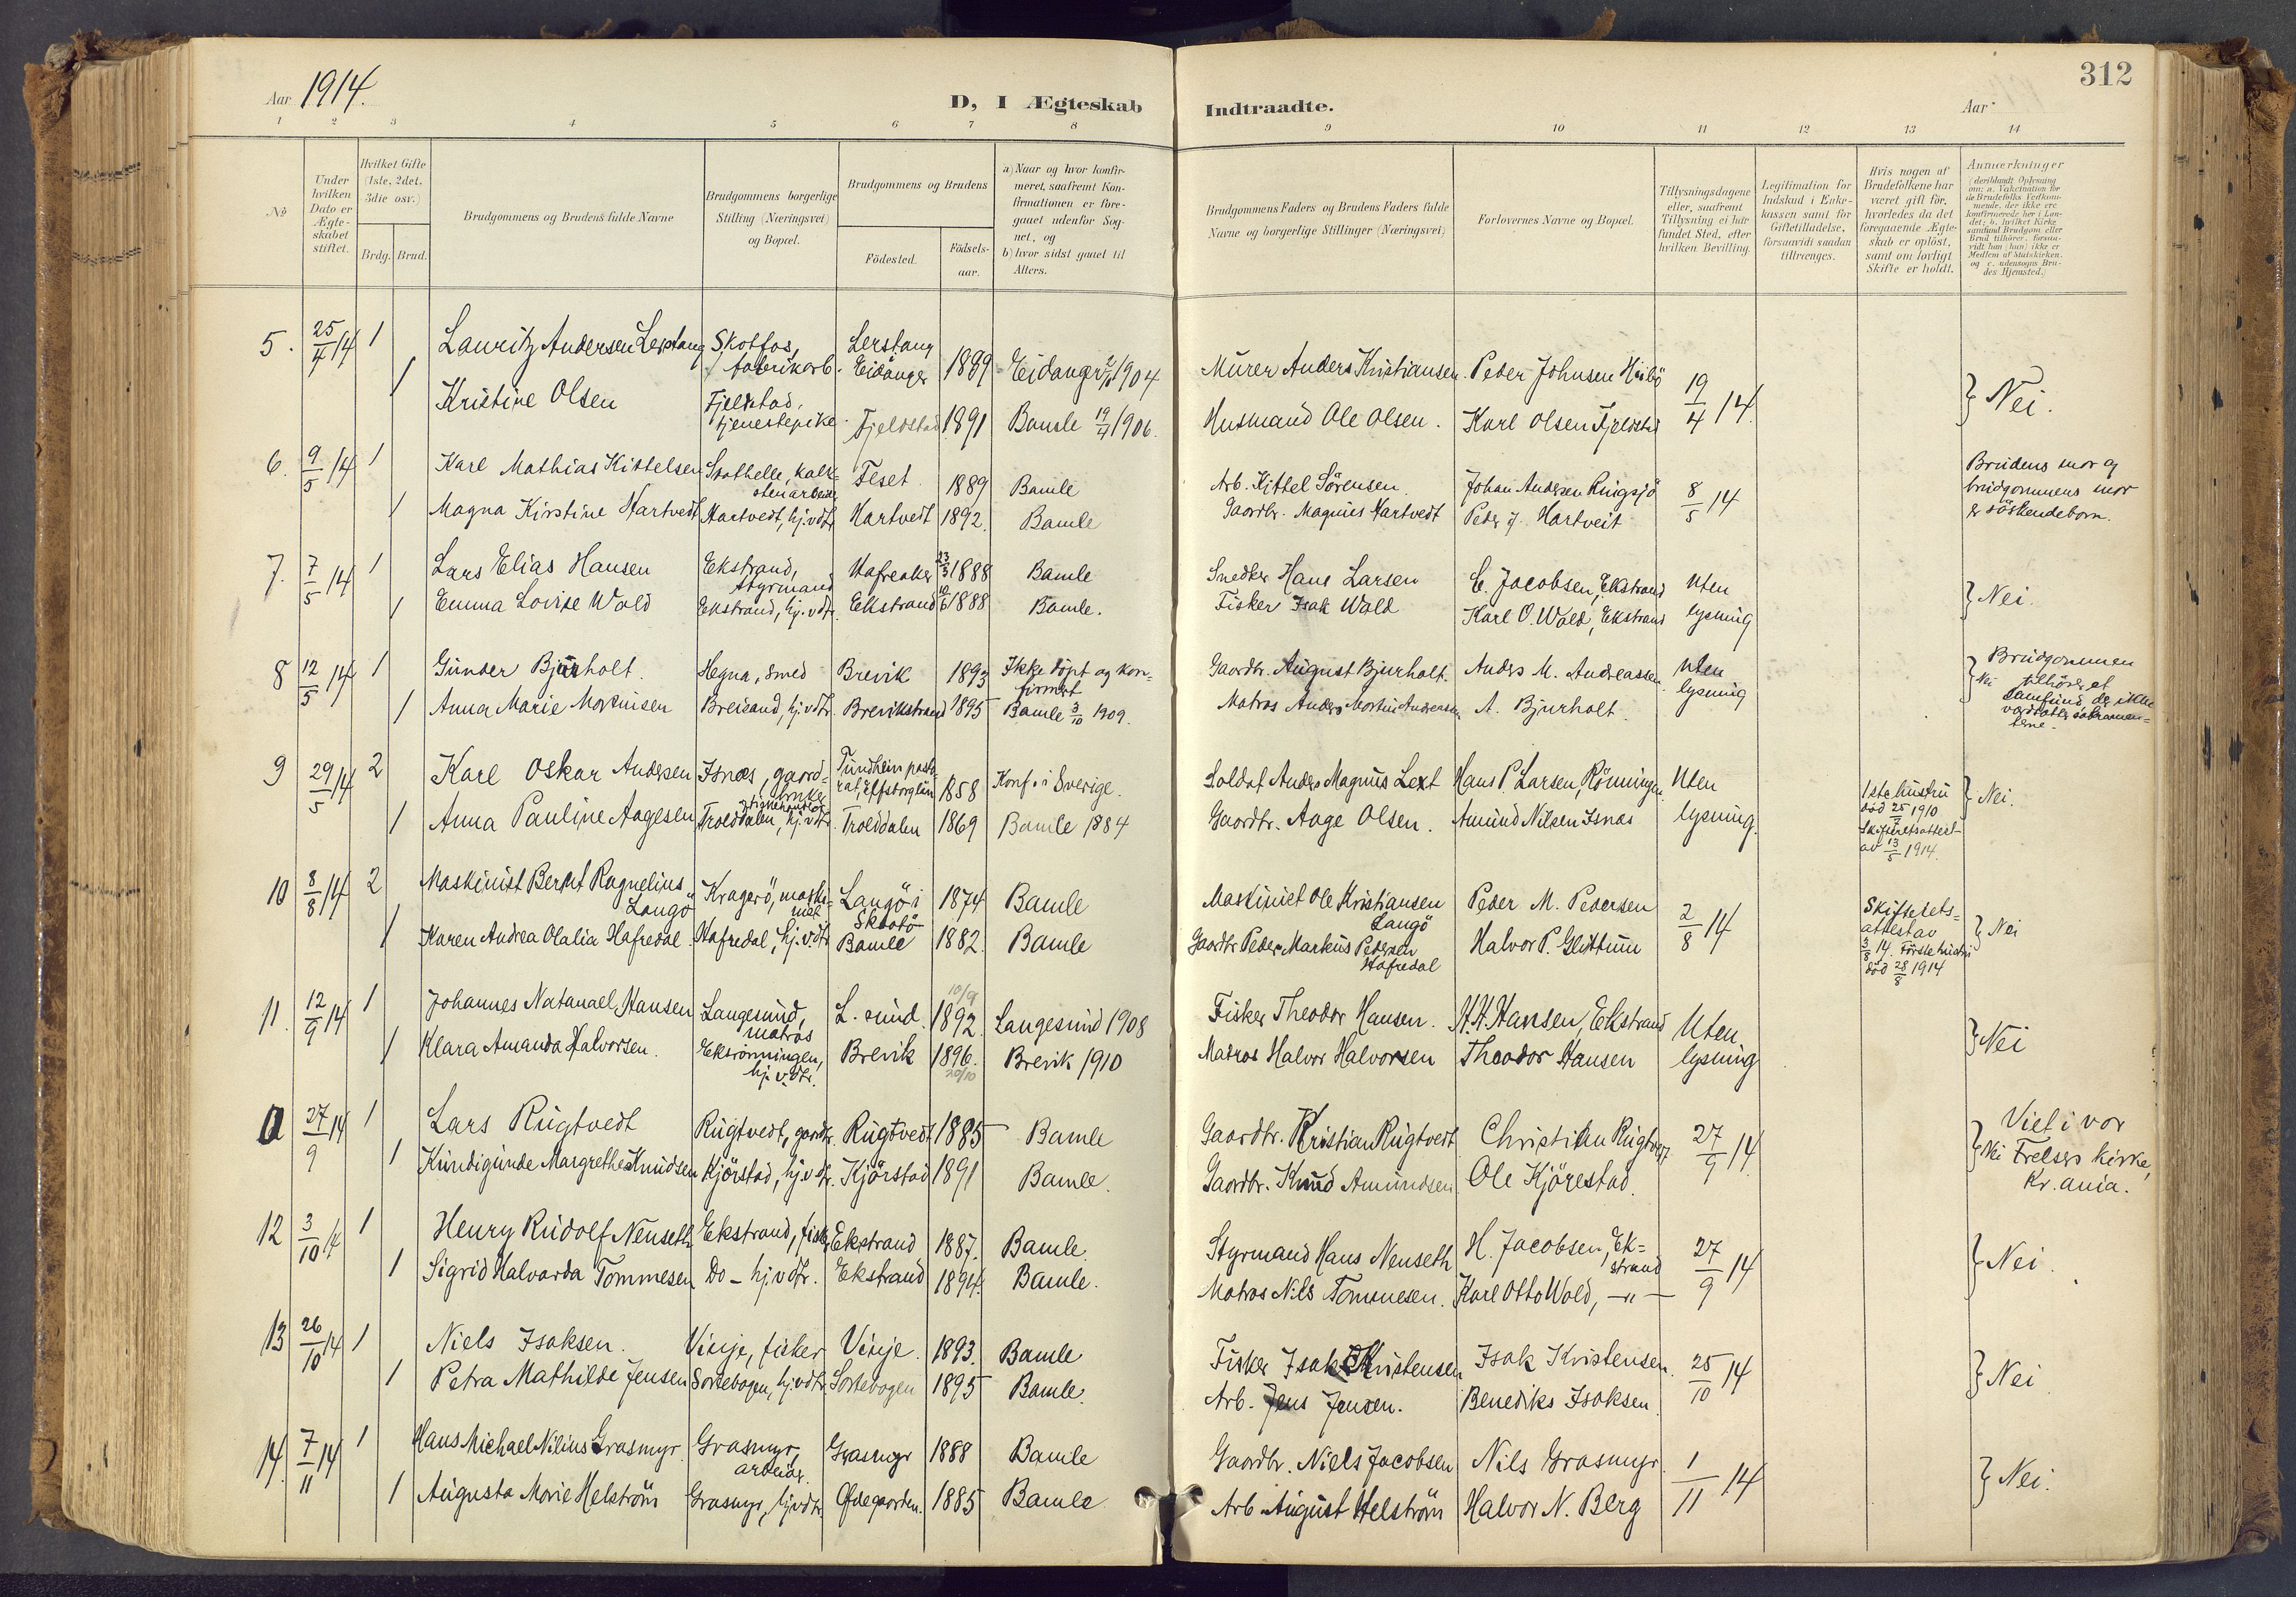 312
Aar 1914.
D, I Ægteskab Indtraadte.
Aar
1 2 3 4 5 6 7 8 9 10 11 12 13 14
No
Under hvilken Dato er Ægteskabet stiftet.
Hvilket Gifte (1ste, 2det, 3die osv.)
Brdg. Brud.
Brudgommens og Brudens fulde Navne
Brudgommens borgerlige Stilling (Næringsvei) og Bopæl.
Brudgommens og Brudens
Födested.
Födsels-aar.
a) Naar og hvor konfirmeret, saafremt Konfirmationen er foregaaet udenfor Sognet, og
b) hvor sidst gaaet til Alters.
Brudgommens Faders og Brudens Faders fulde Navne og borgerlige Stillinger (Næringsvei)
Forlovernes Navne og Bopæl.
Tillysningsdagene eller, saafremt Tillysning ei har fundet Sted, efter hvilken Bevilling.
Legitimation for Indskud i Enkekassen samt for Giftetilladelse, forsaavidt saadan tiltrænges.
Hvis nogen af Brudefolkene har været gift för, hvorledes da det foregaaende Ægteskab er oplöst, samt om lovligt Skifte er holdt.
Anmærkninger
(deriblandt Oplysning om: a. Vakcination for de Brudefolks Vedkommende, der ikke ere konfirmerede her i Landet; b. hvilket Kirkesamfund Brudgom eller Brud tilhörer, forsaavidt han (hun) ikke er Medlem af Statskirken, og c. udensogns Brudes Hjemsted.)
5. 25/4 14 1 Lauritz Andersen Lerstang Skotfos, fabrikarb. Lerstang Eidanger 1889 Eidanger 1904 Murer Anders Kristiansen. Peder Johnsen Heibö 19/4 14. } Nei.
1 Kristine Olsen Fjeldstad, tjenestepike. Fjeldstad 1891 Bamle 19/4 1906. Husmand Ole Olsen. Karl Olsen Fjeldstad
6. 9/5 14 1 Karl Mathias Kittelsen Stathelle, kalkstenarbeider Feset 1889 Bamle Arb. Kittel Sörensen. Johan Andersen Ringsjö 8/5 14 Brudens mor og brudgommens mor er söskendebørn.
1 Magna Kirstine Hartvedt Hartvedt, hj.v.dtr. Hartvedt 1892. Bamle Gaardbr. Magnus Hartvedt Peder J. Hartveit
7. 7/5 14 1 Lars Elias Hansen Ekstrand, styrmand Hafreaker 23/3 1888 Bamle Snedker Hans Larsen E. Jacobsen, Ekstrand Uten lysning } Nei.
1 Emma Lovise Wold Ekstrand, hj.v.dtr. Ekstrand 1888 Bamle. Fisker Isak Wold Karl O. Wold, Ekstrand
8 12/5 14 1 Gunder Bjurholt. Hegna, smed Brevik 1893 Ikke döpt og konfirmert Gaardbr. August Bjurholt. Anders M. Andreassen. Uten lysning } Nei Brudgommen tilhörer et samfund, der ikke vedtatte sakramenterne.
1 Anna Marie Mortinsen Breisand, hj.v.dtr. Brevikstrand 1895 Bamle 3/10 1909. Matros Anders Mortin Andreassen A. Bjurholt.
9 29/5 14 2 Karl Oskar Andersen Isnæs, gaardbruker, Tundhein pastorat, Elfsborg län 1858 Konf. i Sverige. Soldat Anders Magnus Lext Hans P. Larsen, Rönningen. Uten lysning. 1ste hustru död 25/7 1910 Skifteretsattest av 13/5 1914. } Nei.
1 Anna Pauline Aagesen Trolddalen, hj.v.dtr. Trolddalen 1869 Bamle 1884 Gaardbr. Aage Olsen. Amund Nilsen Isnæs
10 8/8 14 2 Maskinist Bernt Ragnelius Langö Kragerö, maskinist Langö i Skaatö 1874 Bamle Maskinist Ole Kristiansen Langö Peder M. Pedersen 2/8 14 Skifteretsattest av 3/8 14. Förste hustru död 28/8 1914 } Nei
1 Karen Andrea Olalia Hafredal. Hafredal, hj.v.dtr. Bamle 1882. Bamle Gaardbr. Peder Markus Pedersen Hafredal Halvor P. Glittum
11. 12/9 14 1 Johannes Natanael Hansen Langesund, matros L. sund. 10/9 1892. Langesund 1908 Fisker Theodor Hansen. H.H. Hansen, Ekstrand Uten lysning } Nei
1 Klara Amanda Halvorsen. Eksrönningen, hj.v.dtr. Brevik 1896. 20/10 Brevik 1910 Matros Halvor Halvorsen Theodor Hansen
0 27/9 14 1 Lars Rugtvedt Rugtvedt, gaardbr. Rugtvedt 1885 Bamle Gaardbr. Kristian Rugtvedt Christian Rugtvedt 27/9 14 } Nei Viet i vor Frelsers kirke, Kr.ania.
1 Kundigunde Margrethe Knudsen Kjörstad, hj.v.dtr. Kjörstad 1891 Bamle. Gaardbr. Knud Amundsen Ole Kjörestad.
12 3/10 14 1 Henry Rudolf Neuseth Ekstrand, fisker Ekstrand 1887. Bamle Styrmand Hans Neuseth H. Jacobsen, Ekstrand 27/9 14 } Nei.
1 Sigrid Halvarda Tommesen Do – hj.v.dtr. Ekstrand 1894. Bamle. Matros Nils Tommesen. Karl Otto Wold, –"–
13 26/10 14 1 Niels Isaksen. Vinje, fisker Vinje. 1893. Bamle Fisker Isak Kristensen Isak Kristensen. 25/10 14 } Nei
1 Petra Mathilde Jensen Sortebogen, hj.v.dtr. Sortebogen 1895 Bamle. Arb. Jens Jensen. Benediks Isaksen.
14. 7/11 14 1 Hans Michael Nilius Grasmyr. Grasmyr, arbeider. Grasmyr 1888 Bamle Gaardbr. Niels Jacobsen Nils Grasmyr. 1/11 14 } Nei.
1 Augusta Marie Helström Grasmyr, hj.v.dtr. Ødegaarden. 1885 Bamle Arb. August Helström Halvor N. Berg